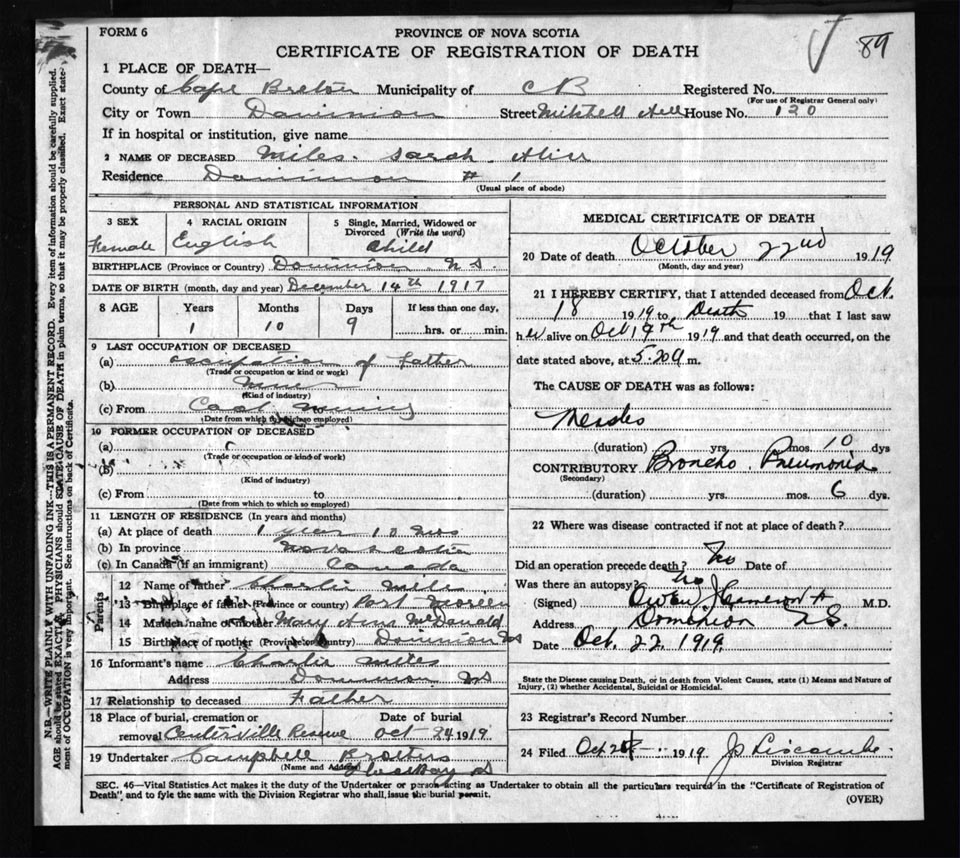 FORM 6
PROVINCE OF NOVA SCOTIA
CERTIFICATE OF REGISTRATION OF DEATH
89
1 PLACE OF DEATH—
County of Cape Breton Municipality of CB Registered No.
(For use of Registrar General only)
City or Town Dominion Street Mitchell House No. 120
If in hospital or institution, give name
2 NAME OF DECEASED Miles. Sarah.
Residence Dominion # 1
(Usual place of abode)
PERSONAL AND STATISTICAL INFORMATION
3 SEX Female
4 RACIAL ORIGIN English
5 Single, Married, Widowed or Divorced (Write the word) Child
BIRTHPLACE (Province or Country) Dominion N S.
DATE OF BIRTH (month, day and year) December 14th 1917
8 AGE Years Months Days If less than one day,
1 10 9 hrs. or min.
9 LAST OCCUPATION OF DECEASED
(a) occupation of Father
(Trade or occupation or kind or work)
(b) Miner
(Kind of industry)
(c) From Coal to Mining
(Date from which to which so employed)
10 FORMER OCCUPATION OF DECEASED
(a)
(Trade or occupation or kind of work)
(b)
(Kind of industry)
(c) From to
(Date from which to which so employed)
11 LENGTH OF RESIDENCE (In years and months)
(a) At place of death 1 year 10 mos
(b) In province Nova Scotia
(c) In Canada (if an immigrant) Canada
Parents
12 Name of father Charlie
13 Birthplace of father (Province or country) Port Morien
14 Maiden name of mother Mary Ann McDonald
15 Birthplace of mother (Province or country) Dominion NS
16 Informant's name Charlie Miles
Address Dominion NS
17 Relationship to deceased Father
18 Place of burial, cremation or Date of burial
removal Centerville Reserve Oct 24 1919
19 Undertaker Campbell
(Name and Address)
MEDICAL CERTIFICATE OF DEATH
20 Date of death October 22nd 1919
(Month, day and year)
21 I HEREBY CERTIFY, that I attended deceased from Oct.
18 1919 to Death 19 that I last saw
her alive on Oct 19th 1919 and that death occurred, on the
date stated above, at 5.20 a m.
The CAUSE OF DEATH was as follows:
Measles
(duration) yrs. mos. 10 dys
CONTRIBUTORY Broncho. Pneumonia
(Secondary)
(duration) yrs. mos. 6 dys.
22 Where was disease contracted if not at place of death?
Did an operation precede death? No Date of
Was there an autopsy? No
(Signed) Owen J Cameron M.D.
Address Dominion N.S.
Date Oct. 22. 1919.
State the Disease causing Death, or in death from Violent Causes, state (1) Means and Nature of
Injury, (2) whether Accidental, Suicidal or Homicidal.
23 Registrar's Record Number
24 Filed Oct 1919
Division Registrar
SEC. 46—Vital Statistics Act makes it the duty of the Undertaker or person acting as Undertaker to obtain all the particulars required in the "Certificate of Registration of
Death", and to fyle the same with the Division Registrar who shall issue the burial permit.
(OVER)
N.B.—WRITE PLAINLY WITH UNFADING INK—THIS IS A PERMANENT RECORD. Every item of information should be carefully supplied.
AGE should be stated EXACTLY. PHYSICIANS should STATE CAUSE OF DEATH in plain terms, so that it may be properly classified. Exact state-
ment of OCCUPATION is very important. See instructions on back of Certificate.